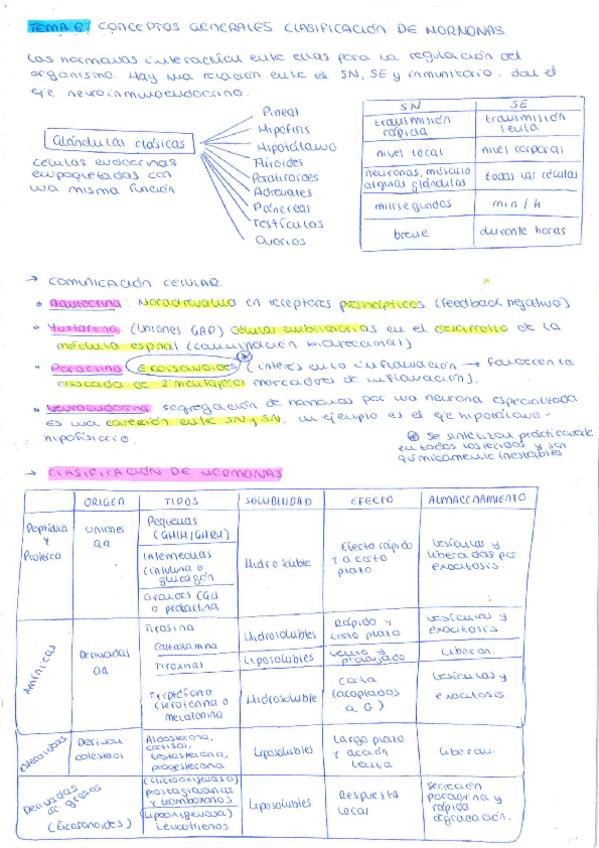 TEMA 6: CONCEPTOS GENERALES CLASIFICACIÓN DE HORMONAS.
Las hormonas interactúan entre ellas para la regulación del
organismo. Hay una relación entre el SN, SE y inmunitario, dan el
eje neuroinmunoendocrino.
Glándulas clásicas
células endocrinas
empaquetadas con
una misma función
Pineal
Hipófisis
Hipotálamo
Tiroides
Paratiroides
Adrenales
Páncreas
Testículos
Ovarios
SN SE
transmisión rápida transmisión lenta
nivel local nivel corporal
neuronas, músculo algunas glándulas todas las células
milisegundos min / h
breve durante horas
→ COMUNICACIÓN CELULAR
• Autocrina: Noradrenalina en receptores presinápticos (feedback negativo)
• Yuxtacrina: (Uniones GAP) células embrionarias en el desarrollo de la
médula espinal (comunicación bidireccional)
• Paracrina: Eicosanoides (interés en la inflamación → favorecen la
cascada de 2º mensajeros marcadores de inflamación).
• Neuroendocrina: segregación de hormonas por una neurona especializada
es una conexión entre SN y SN, un ejemplo es el eje hipotálamo-
hipofisario.
* Se sintetizan prácticamente
en todos los tejidos y son
químicamente inestables
→ CLASIFICACIÓN DE HORMONAS
ORIGEN TIPOS SOLUBILIDAD EFECTO ALMACENAMIENTO
Peptídica y Proteica
Uniones aa
Pequeñas (GHIH/GHRH)
Intermedias (insulina o glucagón
Grandes (GH o prolactina
Hidrosoluble
Efecto rápido y a corto plazo
Vesículas y liberadas por exocitosis.
Amínicas
Derivadas aa
Tirosina
Catecolamina
Hidrosolubles
Rápido y corto plazo
Vesículas y exocitosis
Tiroxinas
Liposolubles
Lento y prolongado
Liberan.
Triptófano (serotonina o melatonina
Hidrosoluble
(acoplados a G)
Vesículas y exocitosis
Esteroideas
Derivan colesterol
Aldosterona, cortisol, testosterona, progesterona
Liposolubles
Largo plazo y acción lenta
Liberan.
Derivadas ac grasos (Eicosanoides)
(Ciclooxigenasa) prostaglandinas y tromboxanos
(lipooxigenasa) Leucotrienos
Liposolubles
Respuesta local
Secreción paracrina y rápida degradación.